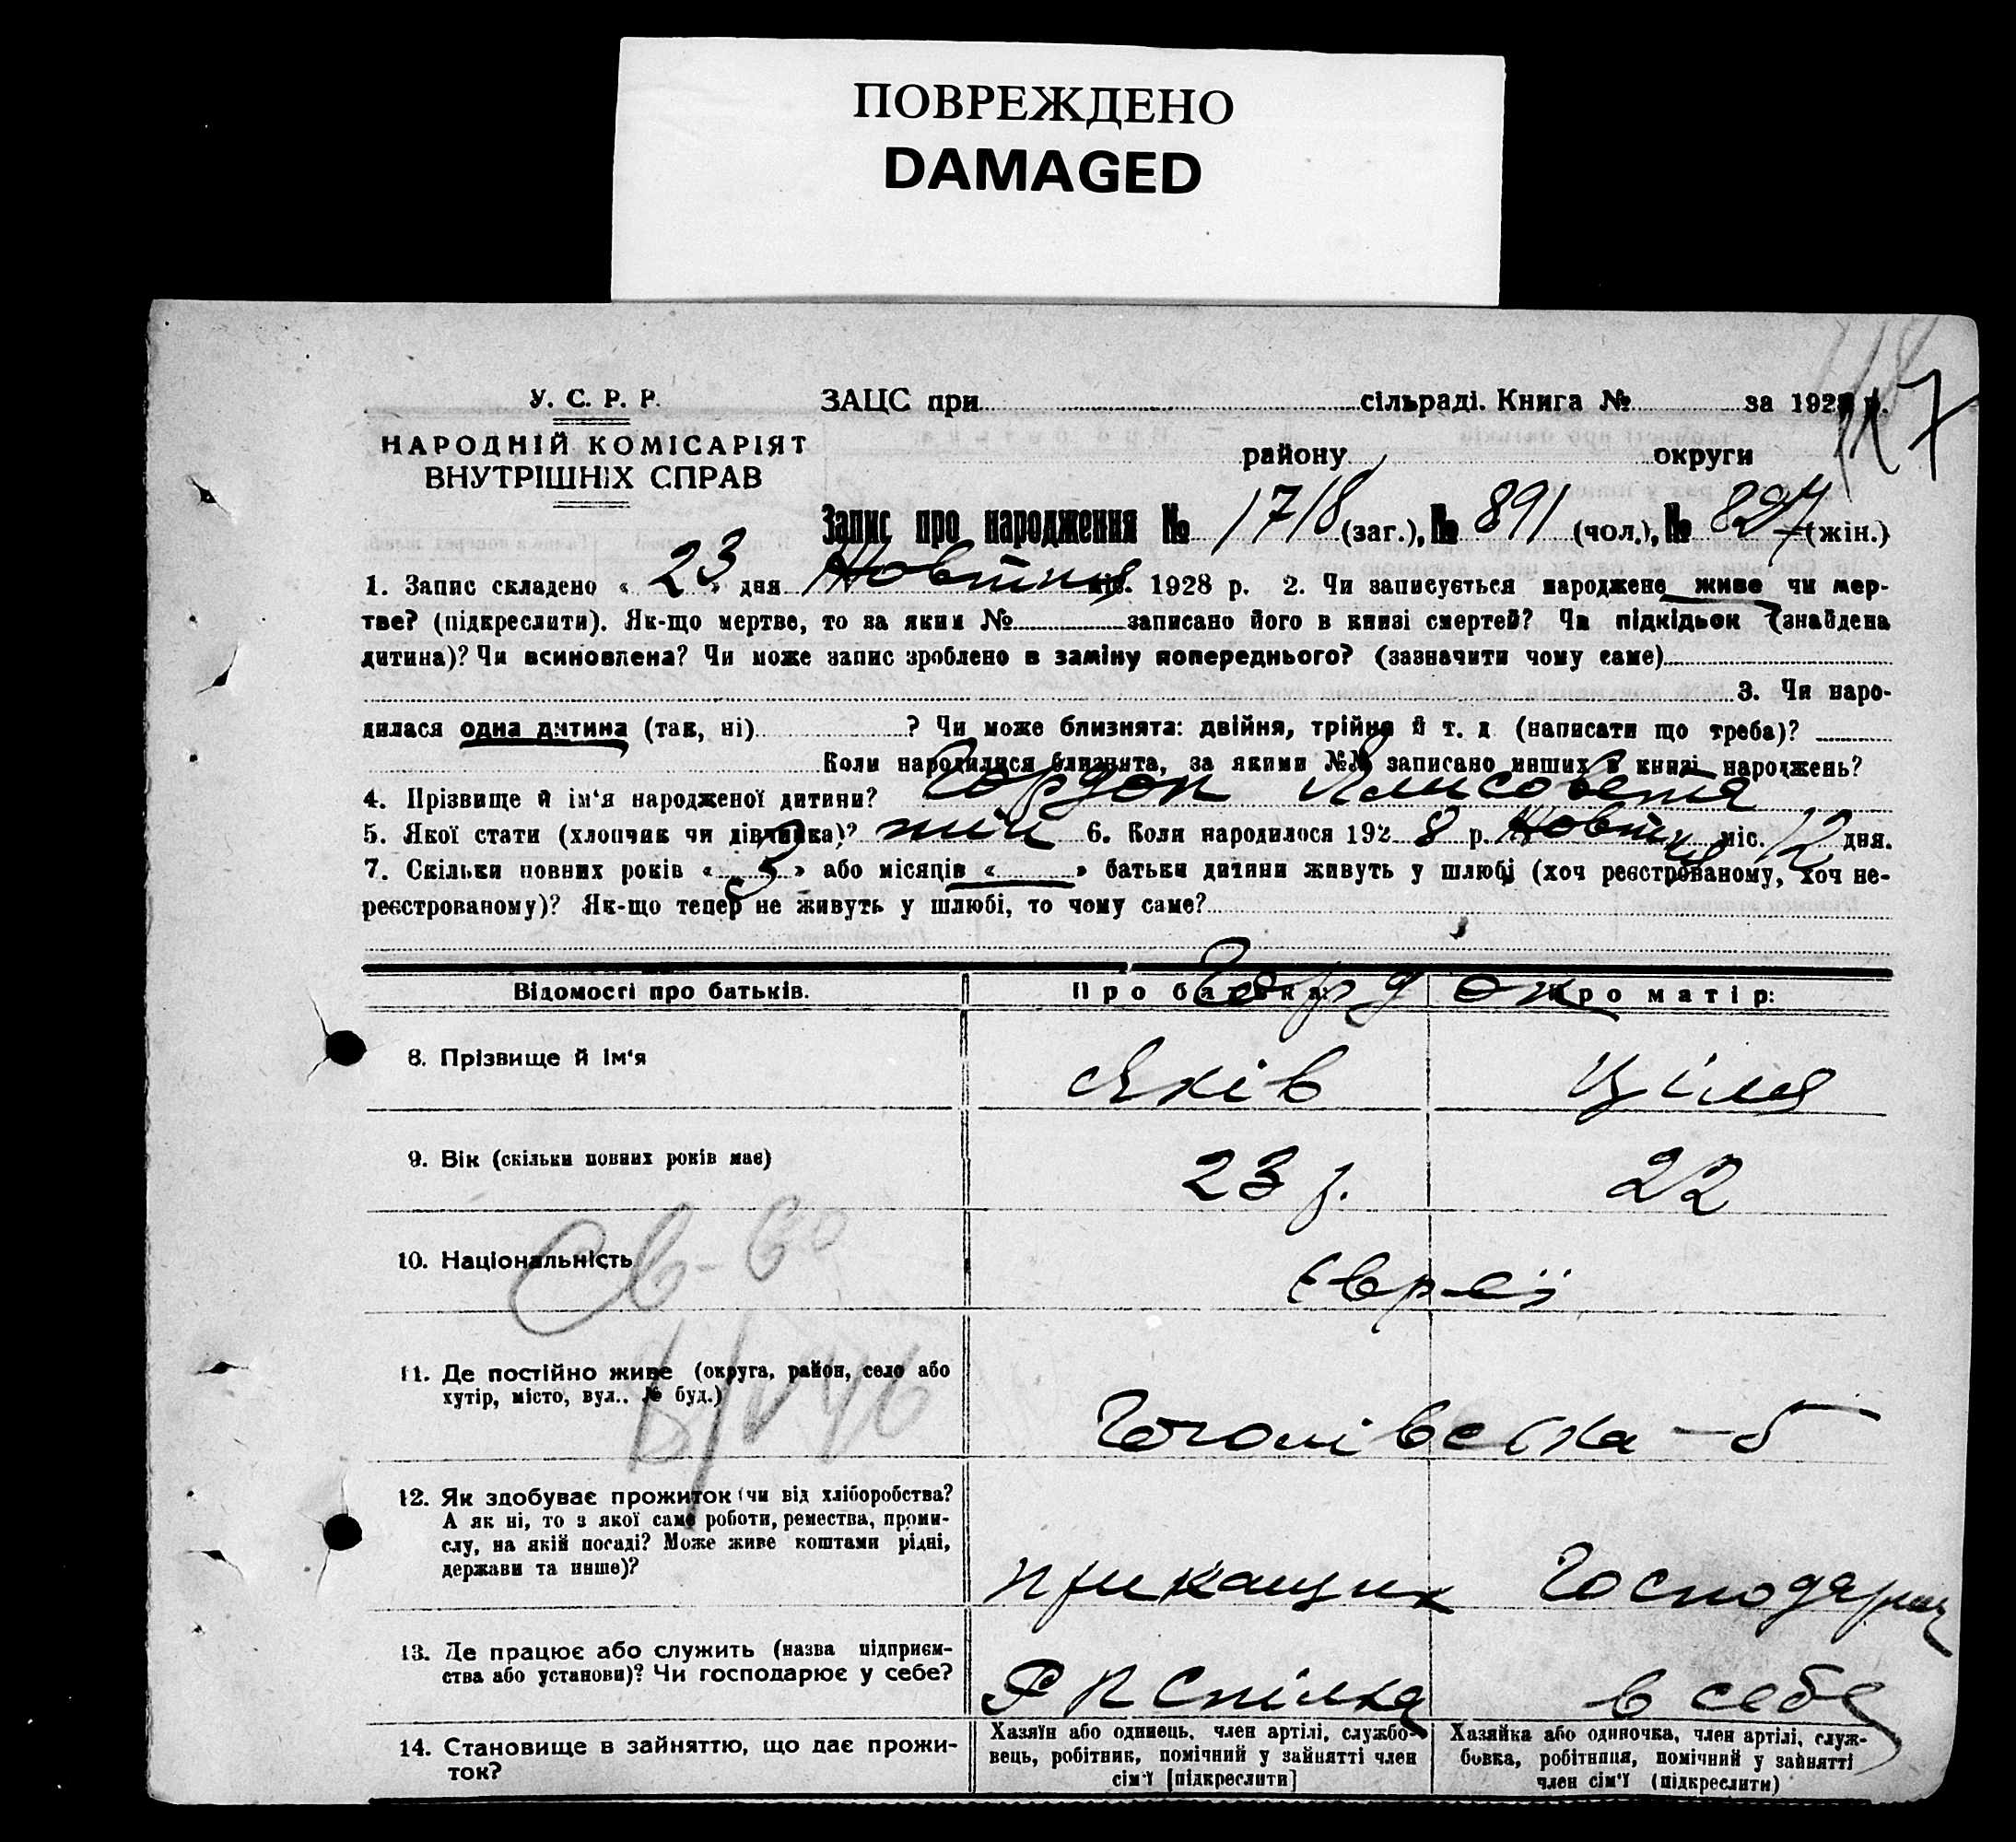 ПОВРЕЖДЕНО
DAMAGED
У. С. Р. Р.
НАРОДНІЙ КОМІСАРІЯТ
ВНУТРІШНІХ СПРАВ
ЗАЦС при сільраді. Книга № за 1928 р.
117
району округи
Запис про народження № 1718 (заг.), № 891 (чол.), № (жін.)
1. Запис складено « 23 » дня Жовтня міс. 1928 р. 2. Чи записується народжене живе чи мер-
тве? (підкреслити). Як-що мертве, то за яким № записано його в книзі смертей? Чи підкідьок (знайдена
дитина)? Чи всиновлена? Чи може запис зроблено в заміну попереднього? (зазначити чому саме)
3. Чи наро-
дилася одна дитина (так, ні) ? Чи може близнята: двійня, трійня й т. д. (написати що треба)?
Коли народилися близнята, за якими №№ записано инших в книзі народжень?
4. Прізвище й ім'я народженої дитини? Гордон Єлисовета
5. Якої стати (хлопчик чи дівчинка)? жін 6. Коли народилося 1928 р. Жовтня міс. 12 дня.
7. Скільки повних років « 3 » або місяців « » батьки дитини живуть у шлюбі (хоч реєстрованому, хоч не-
реєстрованому)? Як-що тепер не живуть у шлюбі, то чому саме?
Гордон
Відомості про батьків. Про батька: Про матір:
8. Прізвище й ім'я Яків Ціля
9. Вік (скільки повних років має) 23 р. 22
10. Національність Євреї
Св-во
11. Де постійно живе (округа, район, село або
хутір, місто, вул., № буд.)
Гоголівська – 5
12. Як здобуває прожиток (чи від хліборобства?
А як ні, то з якої саме роботи, ремества, проми-
слу, на якій посаді? Може живе коштами рідні,
держави та инше)?
прикащик Господарює
13. Де працює або служить (назва підприєм-
ства або установи)? Чи господарює у себе?
Спілка в себе
14. Становище в зайняттю, що дає прожи-
ток?
Хазяїн або одинець, член артілі, службо-
вець, робітник, помічний у зайнятті член
сім'ї [підкреслити]
Хазяйка або одиночка, член артілі, служ-
бовка, робітниця, помічний у зайнятті
член сім'ї (підкреслити)